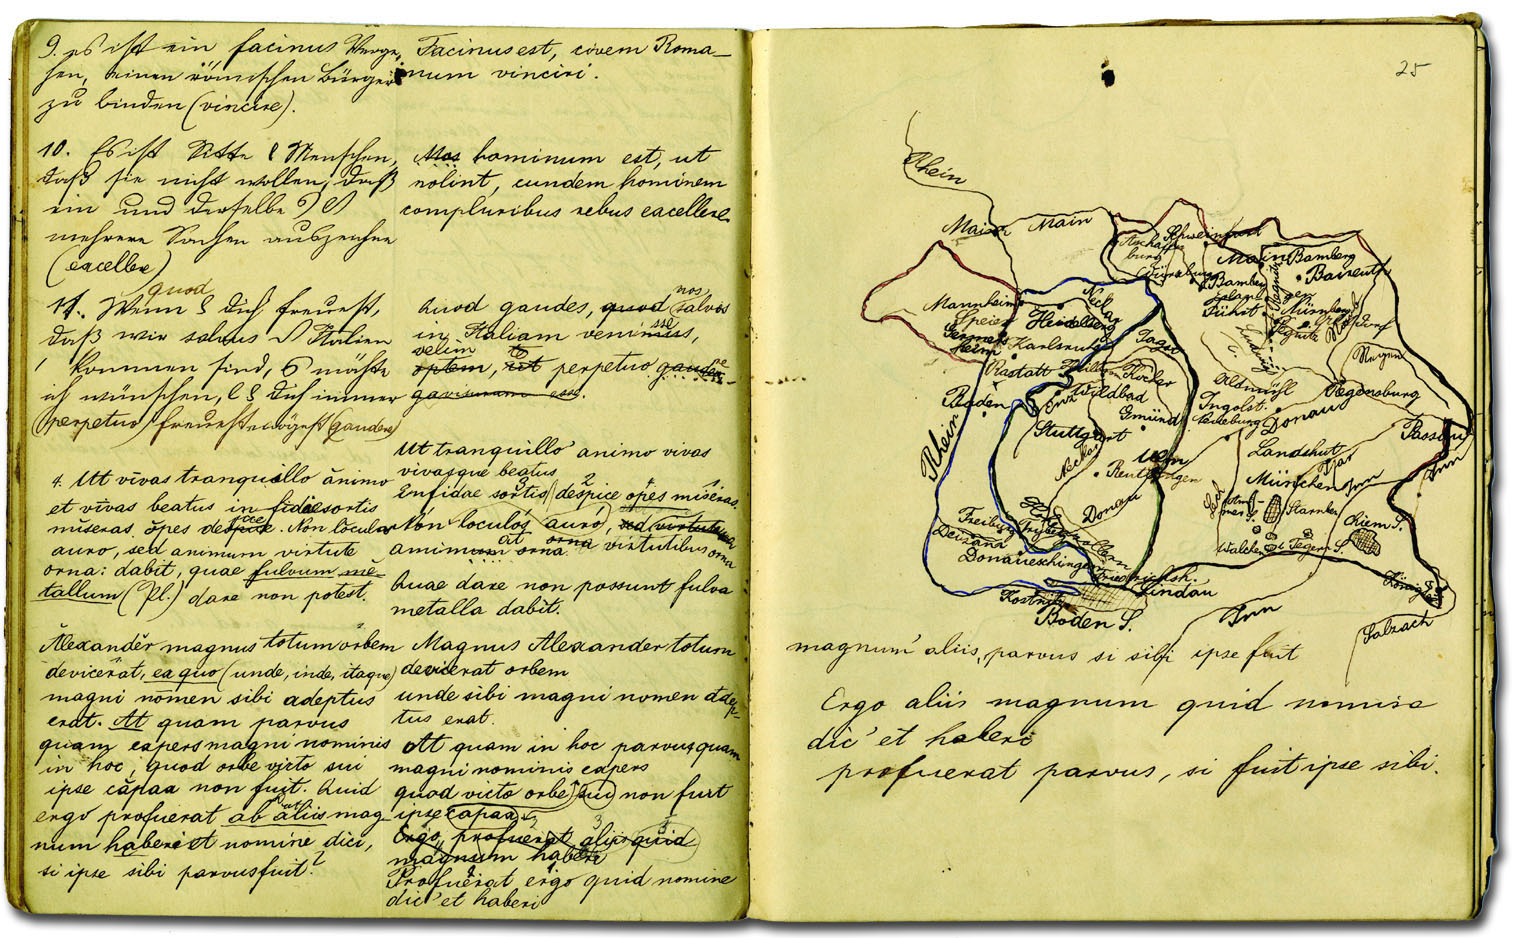 9. es ist ein facinus Verge-
hen, einen römischen Bürger
zu binden (vincire).
Facinus est, civem Roma-
num vinciri.
10. Es ist Sitte d Menschen,
daß sie nicht wollen, daß
ein und derselbe
mehrere Sachen auszeichne
(excellere)
Mos hominum est, ut
nolint, eundem hominem
compluribus rebus excellere
quod
11. Wenn d dich freuest,
daß wir salvus Italien
kommen sind, möchte
ich wünschen, dich immer
(perpetuo) freuest mögest (gaudere)
nos
Quod gaudes, quod salvos
in Italiam venimus, sse
velim te
optem, tet perpetuo gaudere
gavisurum esse.
4. Ut vivas tranquillo ănimo
et vīvas beatus in fidae sortis
mĭseras ŏpes despice. Non loculos
auro, sed animum virtute
orna: dabit, quae fulvum mĕ-
tallum (Pl.) dare non potest.
Ut tranquillo animo vivas
vivasque beatus
Infidae sortis despice opes miseras.
Non loculós auró, sed virtutibus
at orna
animum orna virtutibus orna
Quae dare non possunt fulva
metalla dabit.
Ălexandĕr magnus totum orbem
devicerat, ea quo (unde, inde, itaque)
magni nōmen sibi adeptus
erat. At quam parvus
quam expers magni nominis
in hoc, quod orbe victo sui
ipse căpax non fuit. Quid
ergo profuerat ab aliis mag-
num haberi et nomine dici,
si ipse sibi parvus fuit?
Magnus Alexander totum
devicerat orbem
unde sibi magni nomen adep-
tus erat.
At quam in hoc parvus, quam
magni nominis expers
quod victo orbe sui non fuit
ipse capax
Ergo profuerat aliis quid
magnum haberi
Profuerat ergo quid nomine
dic' et haberi
25
Rhein
Mainz
Main
Aschaffen
burg
Schweinfurt
Würzburg
Main
Bamberg
Baireuth
Regnitz
Fürth
Nürnberg
Mannheim
Speier
Germers
heim
Neckar
Heidelberg
Karlsruhe
Rastatt
Baden
Rhein
Jagst
Kocher
Heilbronn
Wildbad
Enz
Gmünd
Stuttgart
Neckar
Ulm
Reutlingen
Donau
Ludwigs
C.
Altmühl
Ingolst.
Neuburg
Donau
Regen
Regensburg
Passau
Landshut
Isar
Inn
Inn
München
Lech
Ammer S.
Starnber
Walchen
Tegern S.
Chiem S.
Freiburg
Hohenzollern
Donaueschingen
Friedrichsh.
Lindau
Kostnitz
Boden S.
Königs
Inn
Salzach
magnum aliis, parvus si sibi ipse fuit
Ergo aliis magnum quid nomine
dic' et haberi
profuerat parvus, si fuit ipse sibi.